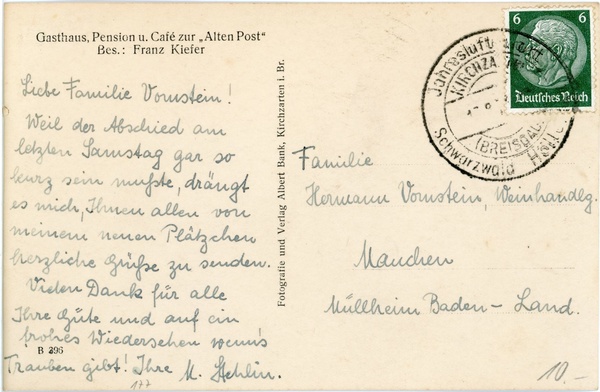 Gasthaus, Pension u. Café zur „Alten Post“
Bes.: Franz Kiefer
Liebe Familie Vornstein!
Weil der Abschied am
letzten Samstag gar so
kurz sein mußte, drängt
es mich, Ihnen allen von
meinem neuen Plätzchen
herzliche Grüße zu senden.
Vielen Dank für alle
Ihre Güte und auf ein
frohes Wiedersehen wenn's
Trauben gibt! Ihre M. Stehlin.
B 396
177
Fotografie und Verlag Albert Bank, Kirchzarten i. Br.
6 6
Deutsches Reich
KIRCHZARTEN
(BREISGAU)
Schwarzwald
Familie
Hermann Vornstein, Weinhandlg.
Mauchen
Müllheim Baden-Land.
10.-